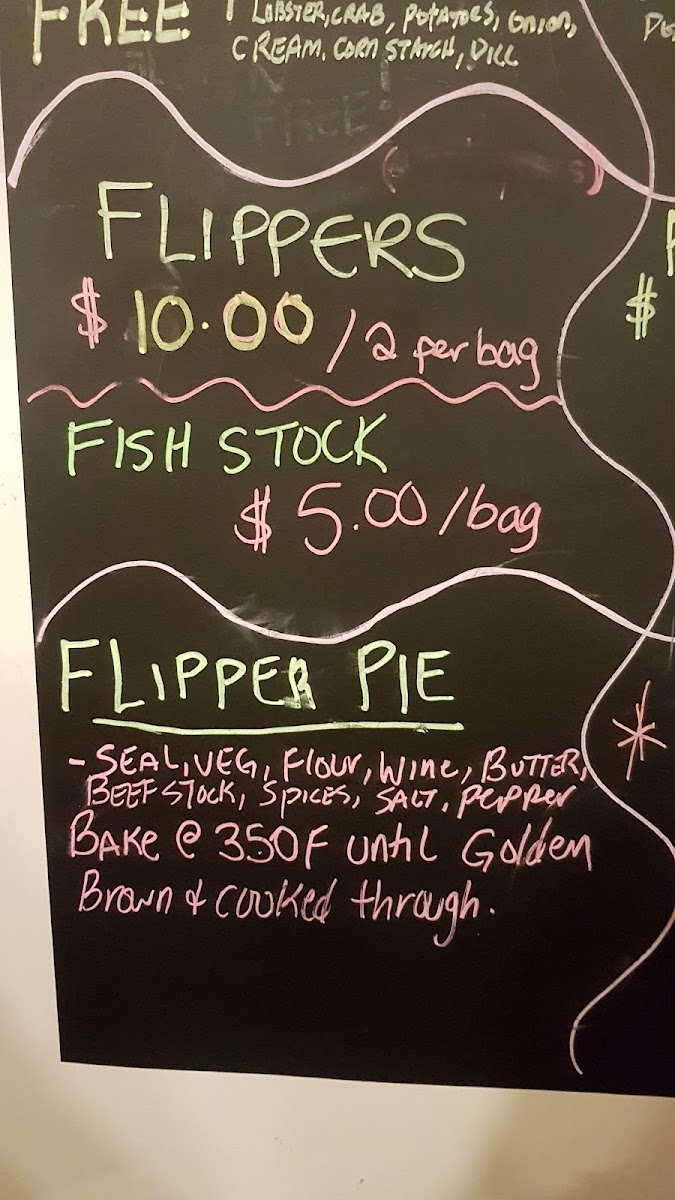 FREE
LOBSTER, CRAB, POTATOES, ONION,
CREAM, CORN STARCH, DILL
FREE
FLIPPERS
$10.00 /2 per bag
$
FISH STOCK
$5.00/bag
FLIPPER PIE
- SEAL, VEG, Flour, Wine, BUTTER,
BEEF STOCK, SPICES, SALT, PePPer
BAKe @ 350F until Golden
Brown & cooked through.
*